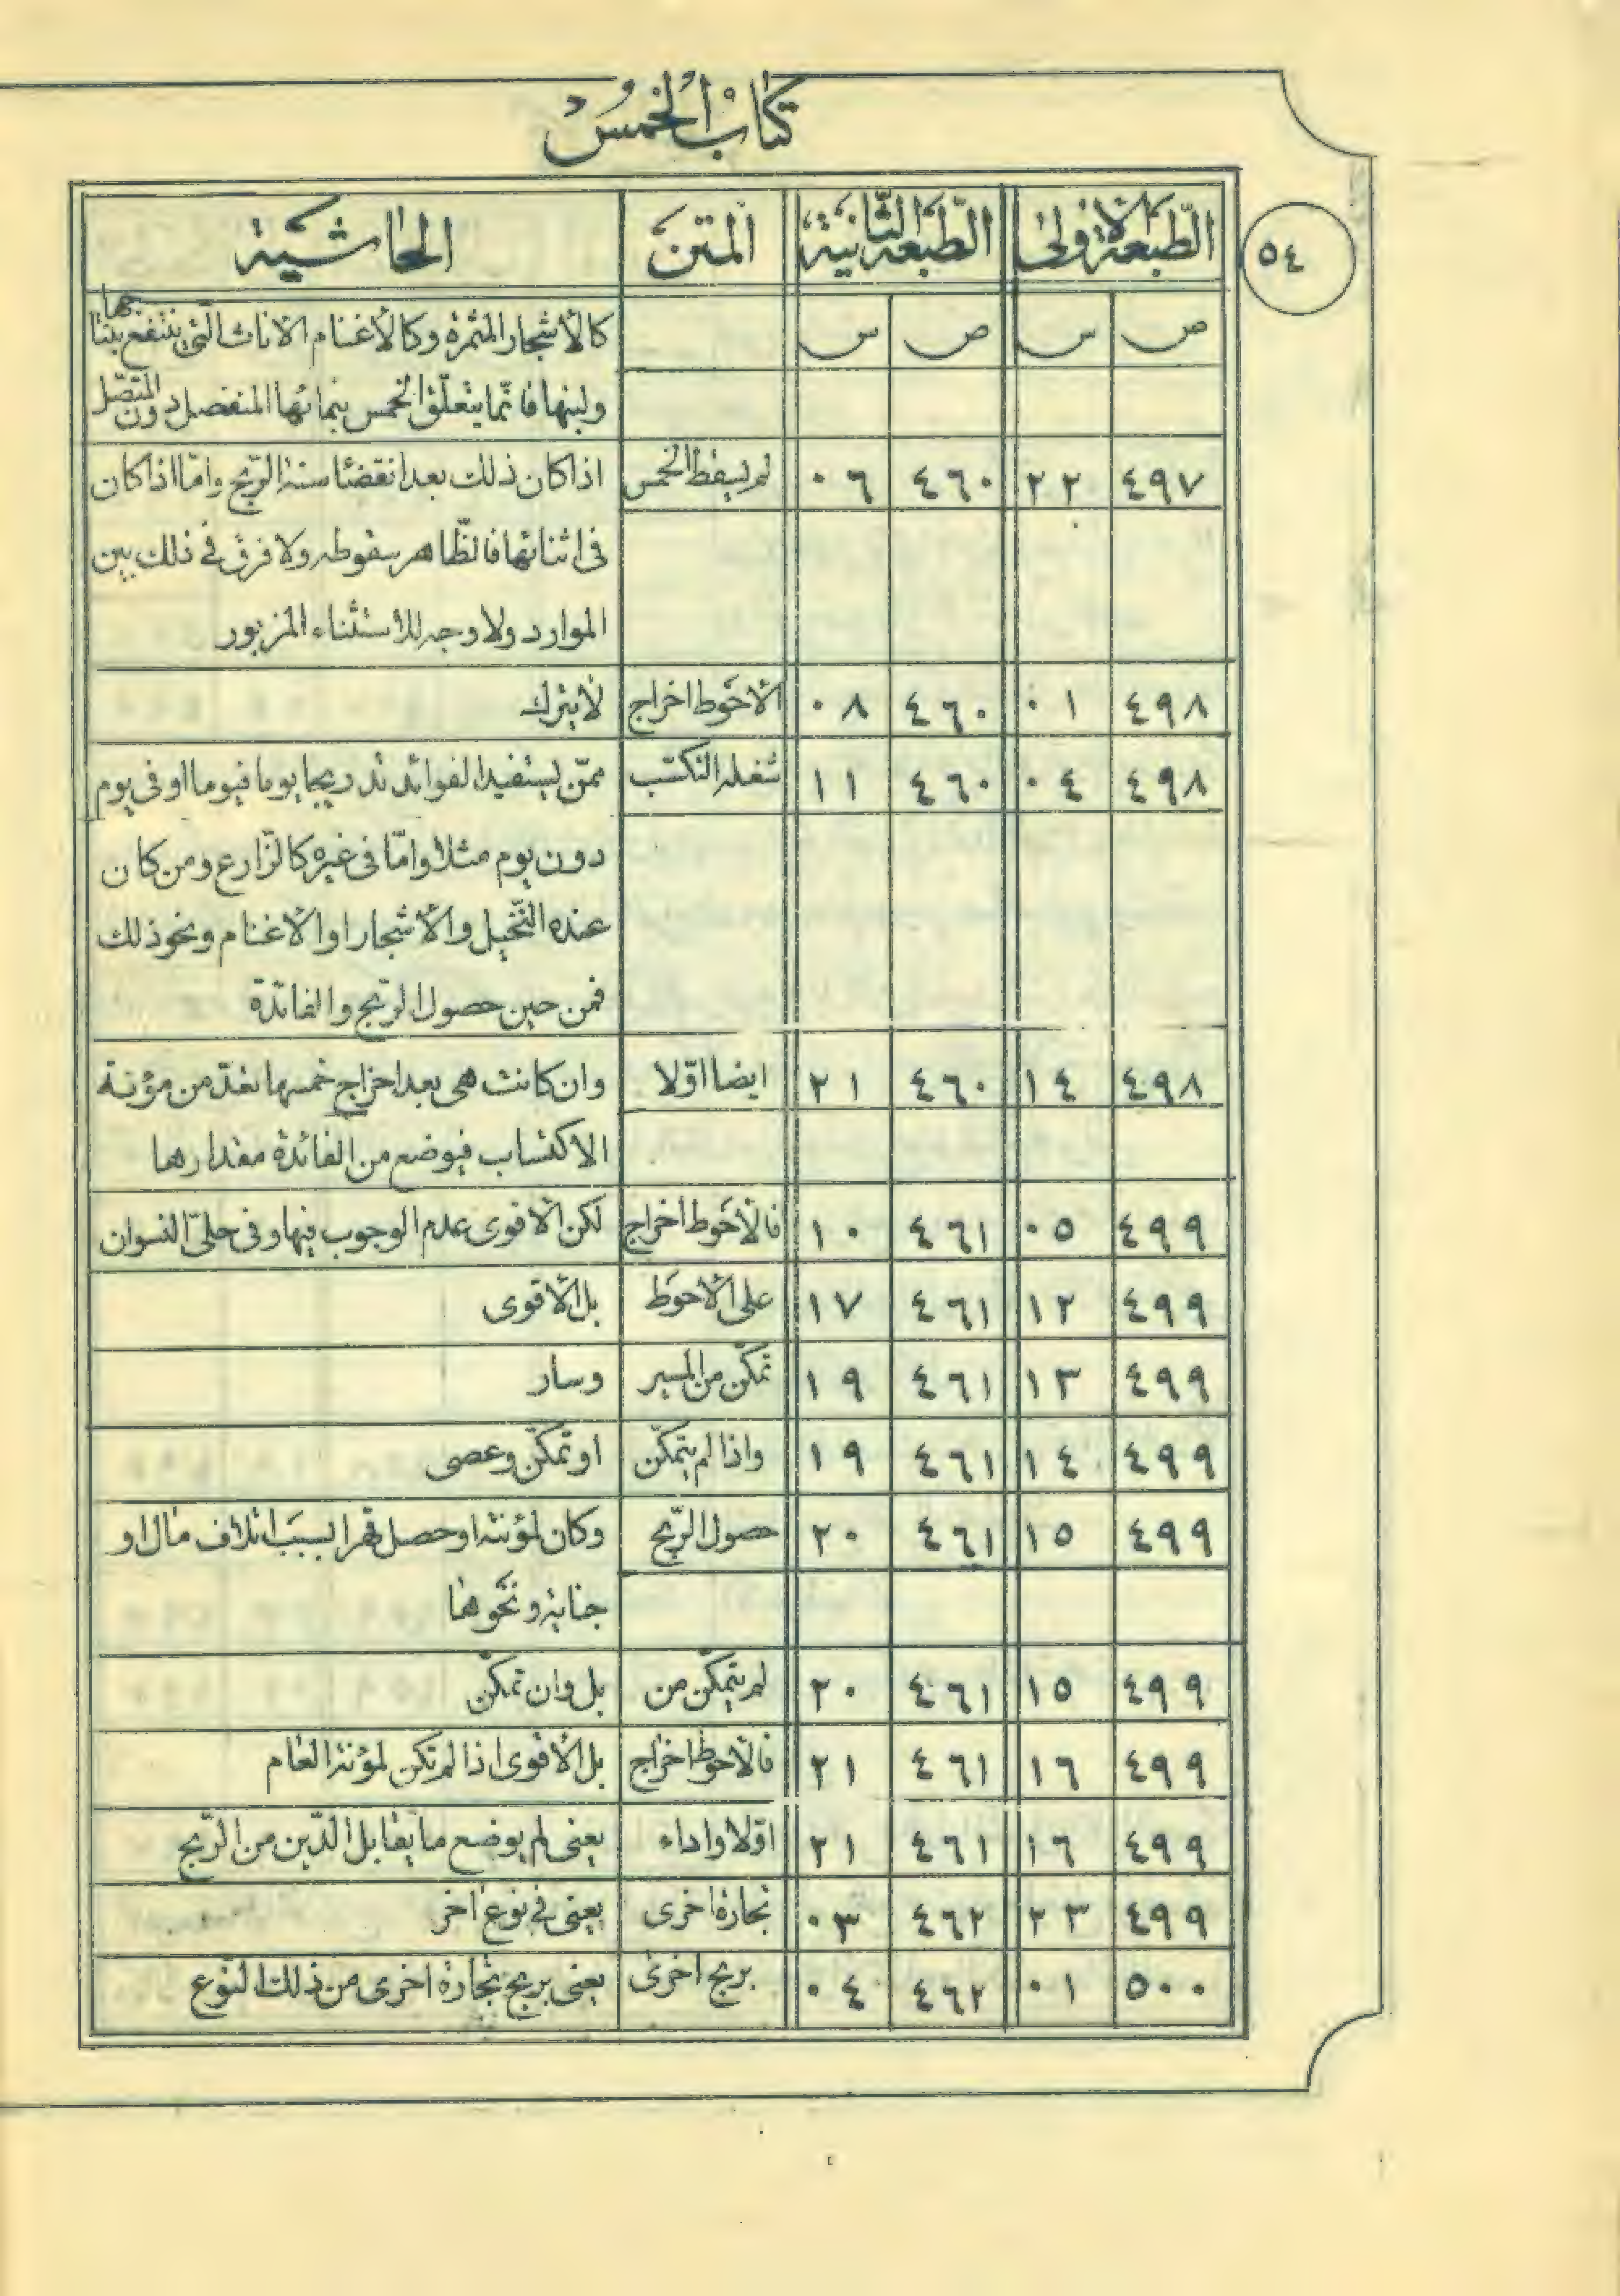 كتاب الخمس
٥٤
الطبعة الاولى الطبعة الثانية المتن الحاشية
ص س ص س كالأشجار المثمرة وكالأغنام الاناث الّتي ينتفع بنتاجها
ولبنها فانّما يتعلّق الخمس بنمائها المنفصل دون المتّصل
٤٩٧ ٢٢ ٤٦٠ ٠٦ لم يسقط الخمس اذا كان ذلك بعد انقضاء سنة الرّبح وامّا اذا كان
فى اثنائها فالظّاهر سقوطه ولا فرق فى ذلك بين
الموارد ولا وجه للاستثناء المزبور
٤٩٨ ٠١ ٤٦٠ ٠٨ الاحوط اخراج لا يترك
٤٩٨ ٠٤ ٤٦٠ ١١ شغله التكسّب ممّن يستفيد الفوائد تدريجا يوما فيوما او فى يوم
دون يوم مثلا وامّا فى غيره كالزّارع ومن كان
عنده النّخيل والأشجار او الأغنام ونحو ذلك
فمن حين حصول الرّبح والفائدة
٤٩٨ ١٤ ٤٦٠ ٢١ ايضا اوّلا وان كانت هى بعد اخراج خمسها تعدّ من مؤنة
الاكتساب فيوضع من الفائدة مقدارها
٤٩٩ ٠٥ ٤٦١ ١٠ فالأحوط اخراج لكن الأقوى عدم الوجوب فيها وفى حلىّ النسوان
٤٩٩ ١٢ ٤٦١ ١٧ على الأحوط بل الأقوى
٤٩٩ ١٣ ٤٦١ ١٩ تمكّن من المسير وسار
٤٩٩ ١٤ ٤٦١ ١٩ واذا لم يتمكّن او تمكّن وعصى
٤٩٩ ١٥ ٤٦١ ٢٠ حصول الرّبح وكان لمؤنته او حصل قهرا بسبب اتلاف مال او
جناية ونحوها
٤٩٩ ١٥ ٤٦١ ٢٠ لم يتمكّن من بل وان تمكّن
٤٩٩ ١٦ ٤٦١ ٢١ فالأحوط اخراج بل الأقوى اذا لم تكن لمؤنة العام
٤٩٩ ١٦ ٤٦١ ٢١ اوّلا واداء يعنى لم يوضع ما يقابل الدّين من الرّبح
٤٩٩ ٢٣ ٤٦٢ ٠٣ تجارة اخرى يعنى فى نوع اخر
٥٠٠ ٠١ ٤٦٢ ٠٤ بربح اخرى يعنى بربح تجارة اخرى من ذلك النّوع